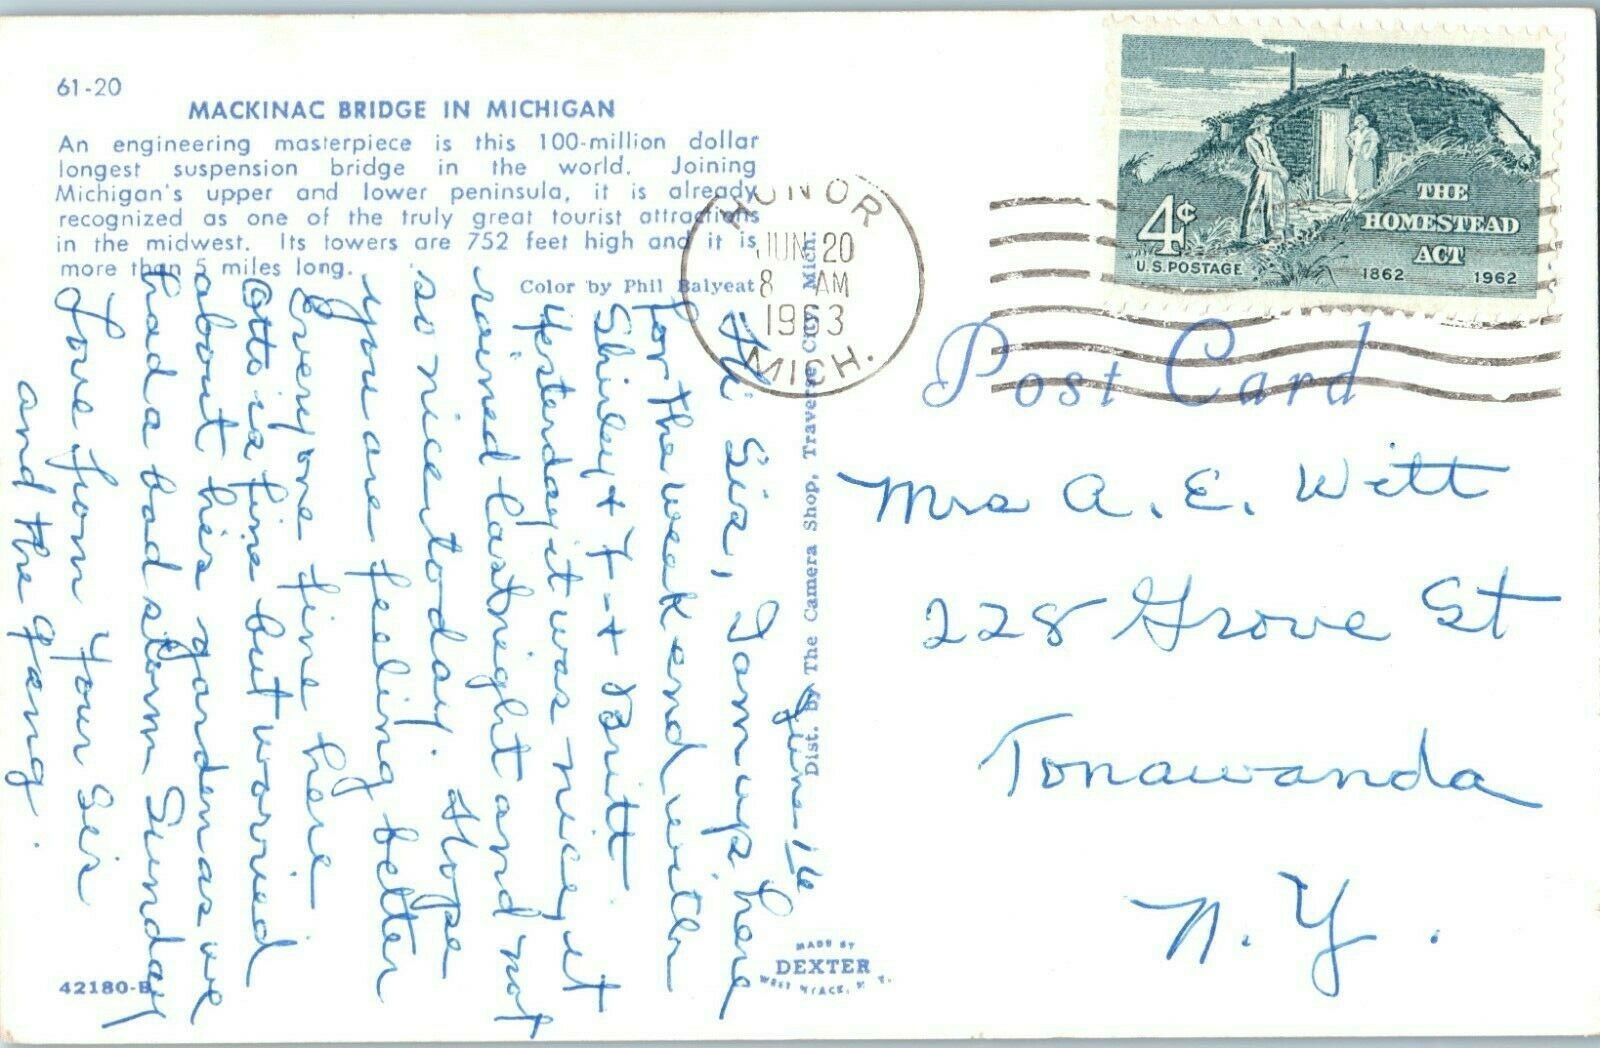 61-20
MACKINAC BRIDGE IN MICHIGAN
An engineering masterpiece is this 100-million dollar
longest suspension bridge in the world. Joining
Michigan's upper and lower peninsula, it is already
recognized as one of the truly great tourist attractions
in the midwest. Its towers are 752 feet high and it is
more than 5 miles long.
Color by Phil Balyeat
HONOR
JUN 20
8 AM
1963
MICH.
4¢
U.S. POSTAGE
THE
HOMESTEAD
ACT
1862 1962
Post Card
Mrs A. E. Witt
228 Grove St
Tonawanda
N. Y.
June 16
Hi Sis, I am up here
for the week end with
Shirley + F- + Britt.
Yesterday it was nice, it
rained last night and not
so nice today. Hope
you are feeling better
Everyone fine here
Otto is fine but worried
about his garden as we
had a bad storm Sunday
Love from Your Sis
and the gang.
Dist. by The Camera Shop, Traverse City, Mich.
MADE BY
DEXTER
WEST NYACK, N. Y.
42180-B